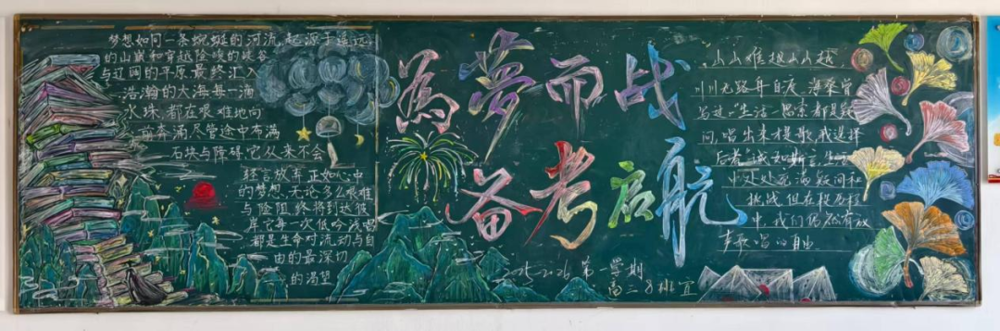 梦想如同一条蜿蜒的河流,起源于遥远
的山巅和穿越险峻的峡谷
与辽阔的平原最终汇入
浩瀚的大海每一滴
水珠,都在艰难地向
前奔涌尽管途中布满
石块与障碍它从来不会
轻言放弃正如心中
的梦想,无论多么艰难
与险阻终将到达彼
岸它每一次低吟浅唱
都是生命对流动与自
由的最深切
的渴望
為梦而战
备考启航
山山难越山山越
川川无路舟自渡
写过"生活
问,唱出来才是歌,我选择
后者
中处处充满疑问和
挑战但在
中,我们偶然有
唱 自由
第一学期
高三8班宣